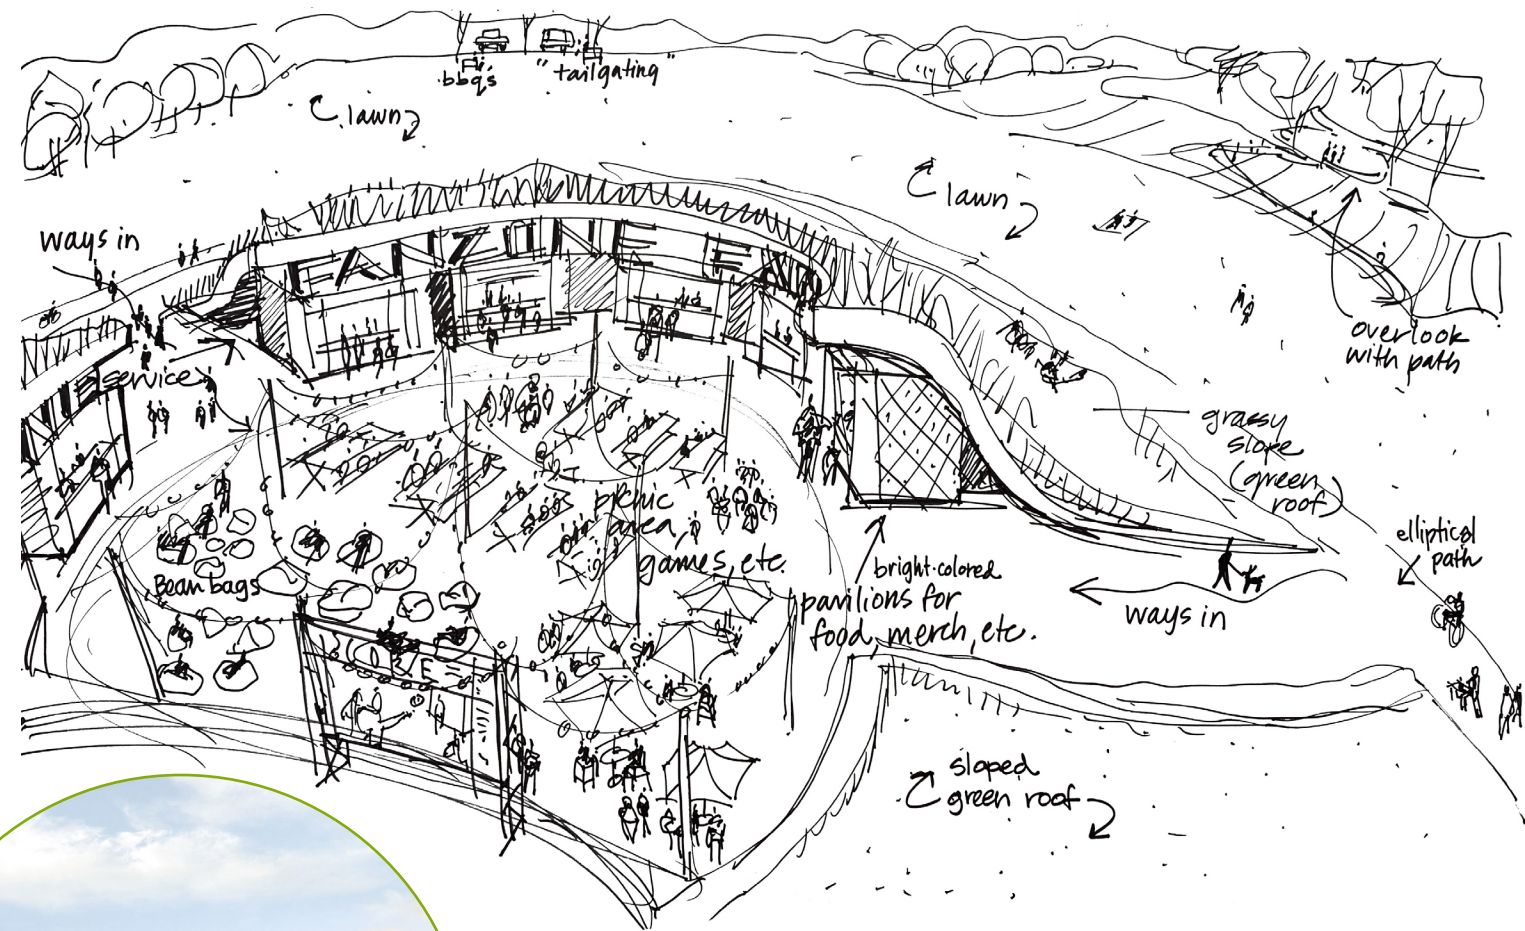 bbq's
"tailgating"
lawn
lawn
ways in
FANZONE FAN
service
overlook
with path
grassy
slope
(green
roof)
elliptical
path
picnic
area,
games, etc.
Bean bags
bright-colored
pavilions for
food, merch, etc.
ways in
sloped
green roof